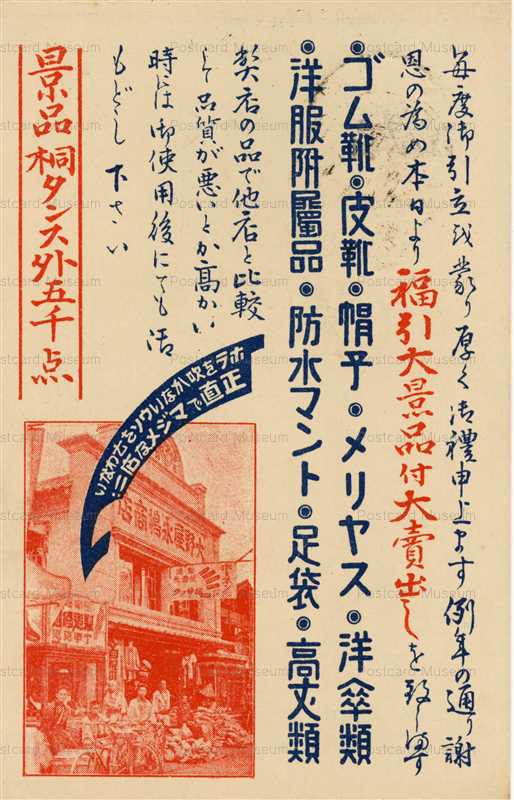 毎度御引立を蒙り厚く御禮申上ます例年の通り謝
恩の為め本日より福引大景品付大賣出しを致します
●ゴム靴●皮靴●帽子●メリヤス●洋傘類
●洋服附屬品●防水マント●足袋●高丈類
弊店の品で他店と比較
して品質が悪いとか高かい
時には御使用後にても
もどし下さい
景品桐タンス外五千点
ホラを吹かないウソをも
正直でマジメな店
大野屋永嶋商店
Postcard Museum